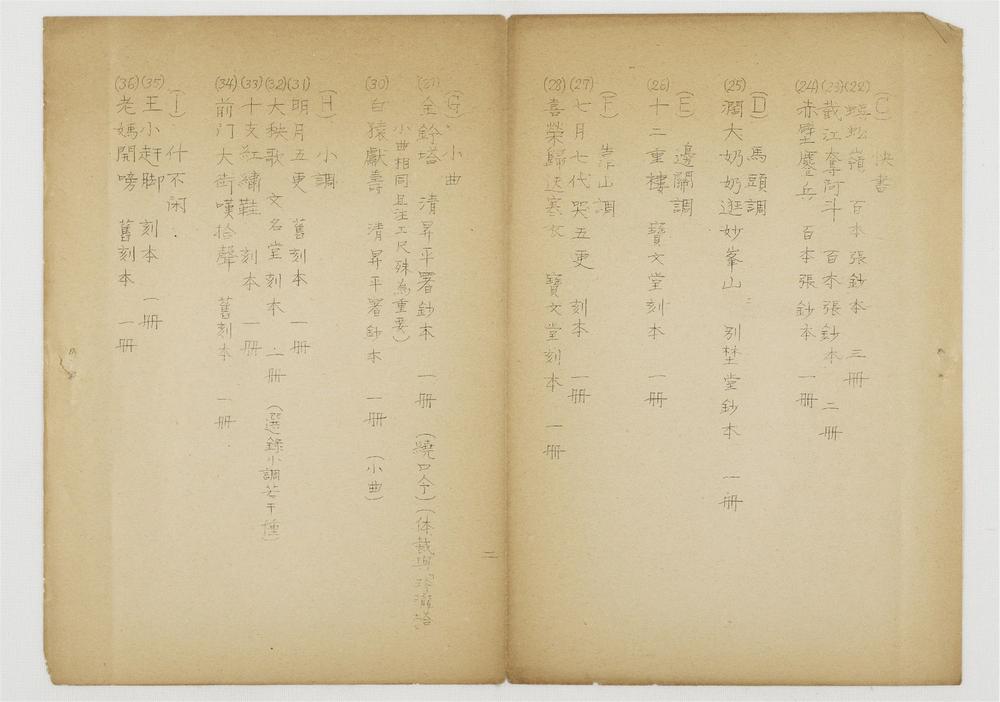 (C) 快書
(22) 蜈蚣嶺 百本張鈔本 三冊
(23) 截江奪阿斗 百本張鈔本 二冊
(24) 赤壁鏖兵 百本張鈔本 一冊
(D) 馬頭調
(25) 濶大奶奶逛妙峯山 別埜堂鈔本 一冊
(E) 邊關調
(26) 十二重樓 寶文堂刻本 一冊
(F) 靠山調
(27) 七月七代哭五更 刻本 一冊
(28) 喜榮歸送寒衣 寶文堂刻本 一冊
二
(G) 小曲
(29) 金鈴塔 清昇平署鈔本 一冊 (繞口令)(体裁與
小曲相同且注工尺殊為重要)
(30) 白猿獻壽 清昇平署鈔本 一冊 (小曲)
(H) 小調
(31) 明月五更 舊刻本 一冊
(32) 大秧歌 文名堂刻本 二冊 (選錄小調若干種)
(33) 十支紅繡鞋 刻本 一冊
(34) 前门大街嘆拾聲 舊刻本 一冊
(I) 什不闲
(35) 王小赶脚 刻本 一冊
(36) 老媽開嗙 舊刻本 一冊